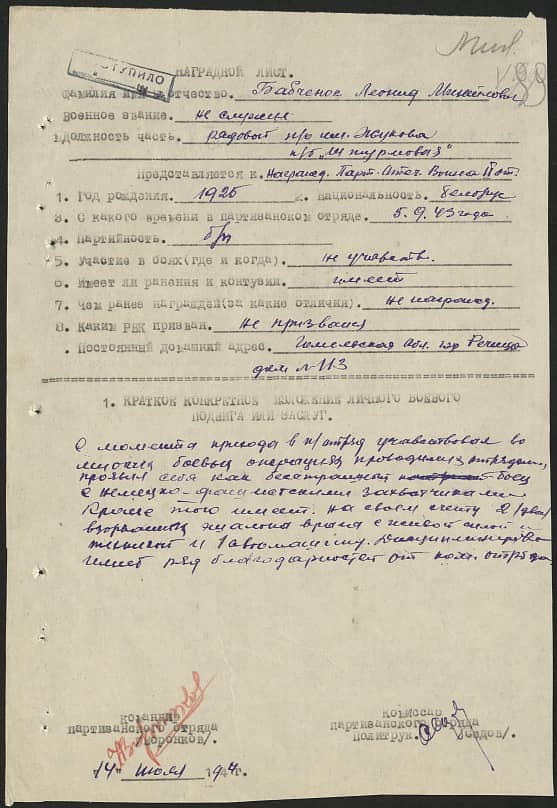 НАГРАДНОЙ ЛИСТ.
Фамилия имя отчество. Бабченок Леонид
Военное звание. не служил
Должность часть. рядовой п/о им. Жукова
п/б "Штурмовая"
Представляется к. Парт. Отеч. Войны II ст.
1. Год рождения. 1925 2. Национальность. белорус
3. С какого времени в партизанском отряде. 5.9.43 года
4. Партийность. б/п
5. Участие в боях(где и когда). не участв.
6. Имеет ли ранения и контузии. имеет
7. Чем ранее награждей(за какие отличия). не награжд.
8. Каким РВК призван. не призвался
. Постоянный домашний адрес. Гомельская обл. гор Речица
дом №113
1. КРАТКОЕ КОНКРЕТНОЕ ИЗЛОЖЕНИЕ ЛИЧНОГО БОЕВОГО
ПОДВИГА ИЛИ ЗАСЛУГ.
С момента прихода в п/отряд участвовал во
многих боевых операциях проводимых отрядом,
проявил себя как бесстрашный боец
с немецко-фашистскими захватчиками
Кроме того имеет на своем счету 2/два/
взорванных эшалона врага с живой силой и
техникой и 1 автомашину.
имеет ряд благодарностей от ком. отряда.
Командир
партизанского отряда
/Воронков/.
Комиссар
партизанского отряда
Политрук /Садов/.
"14" июля 1944 г.